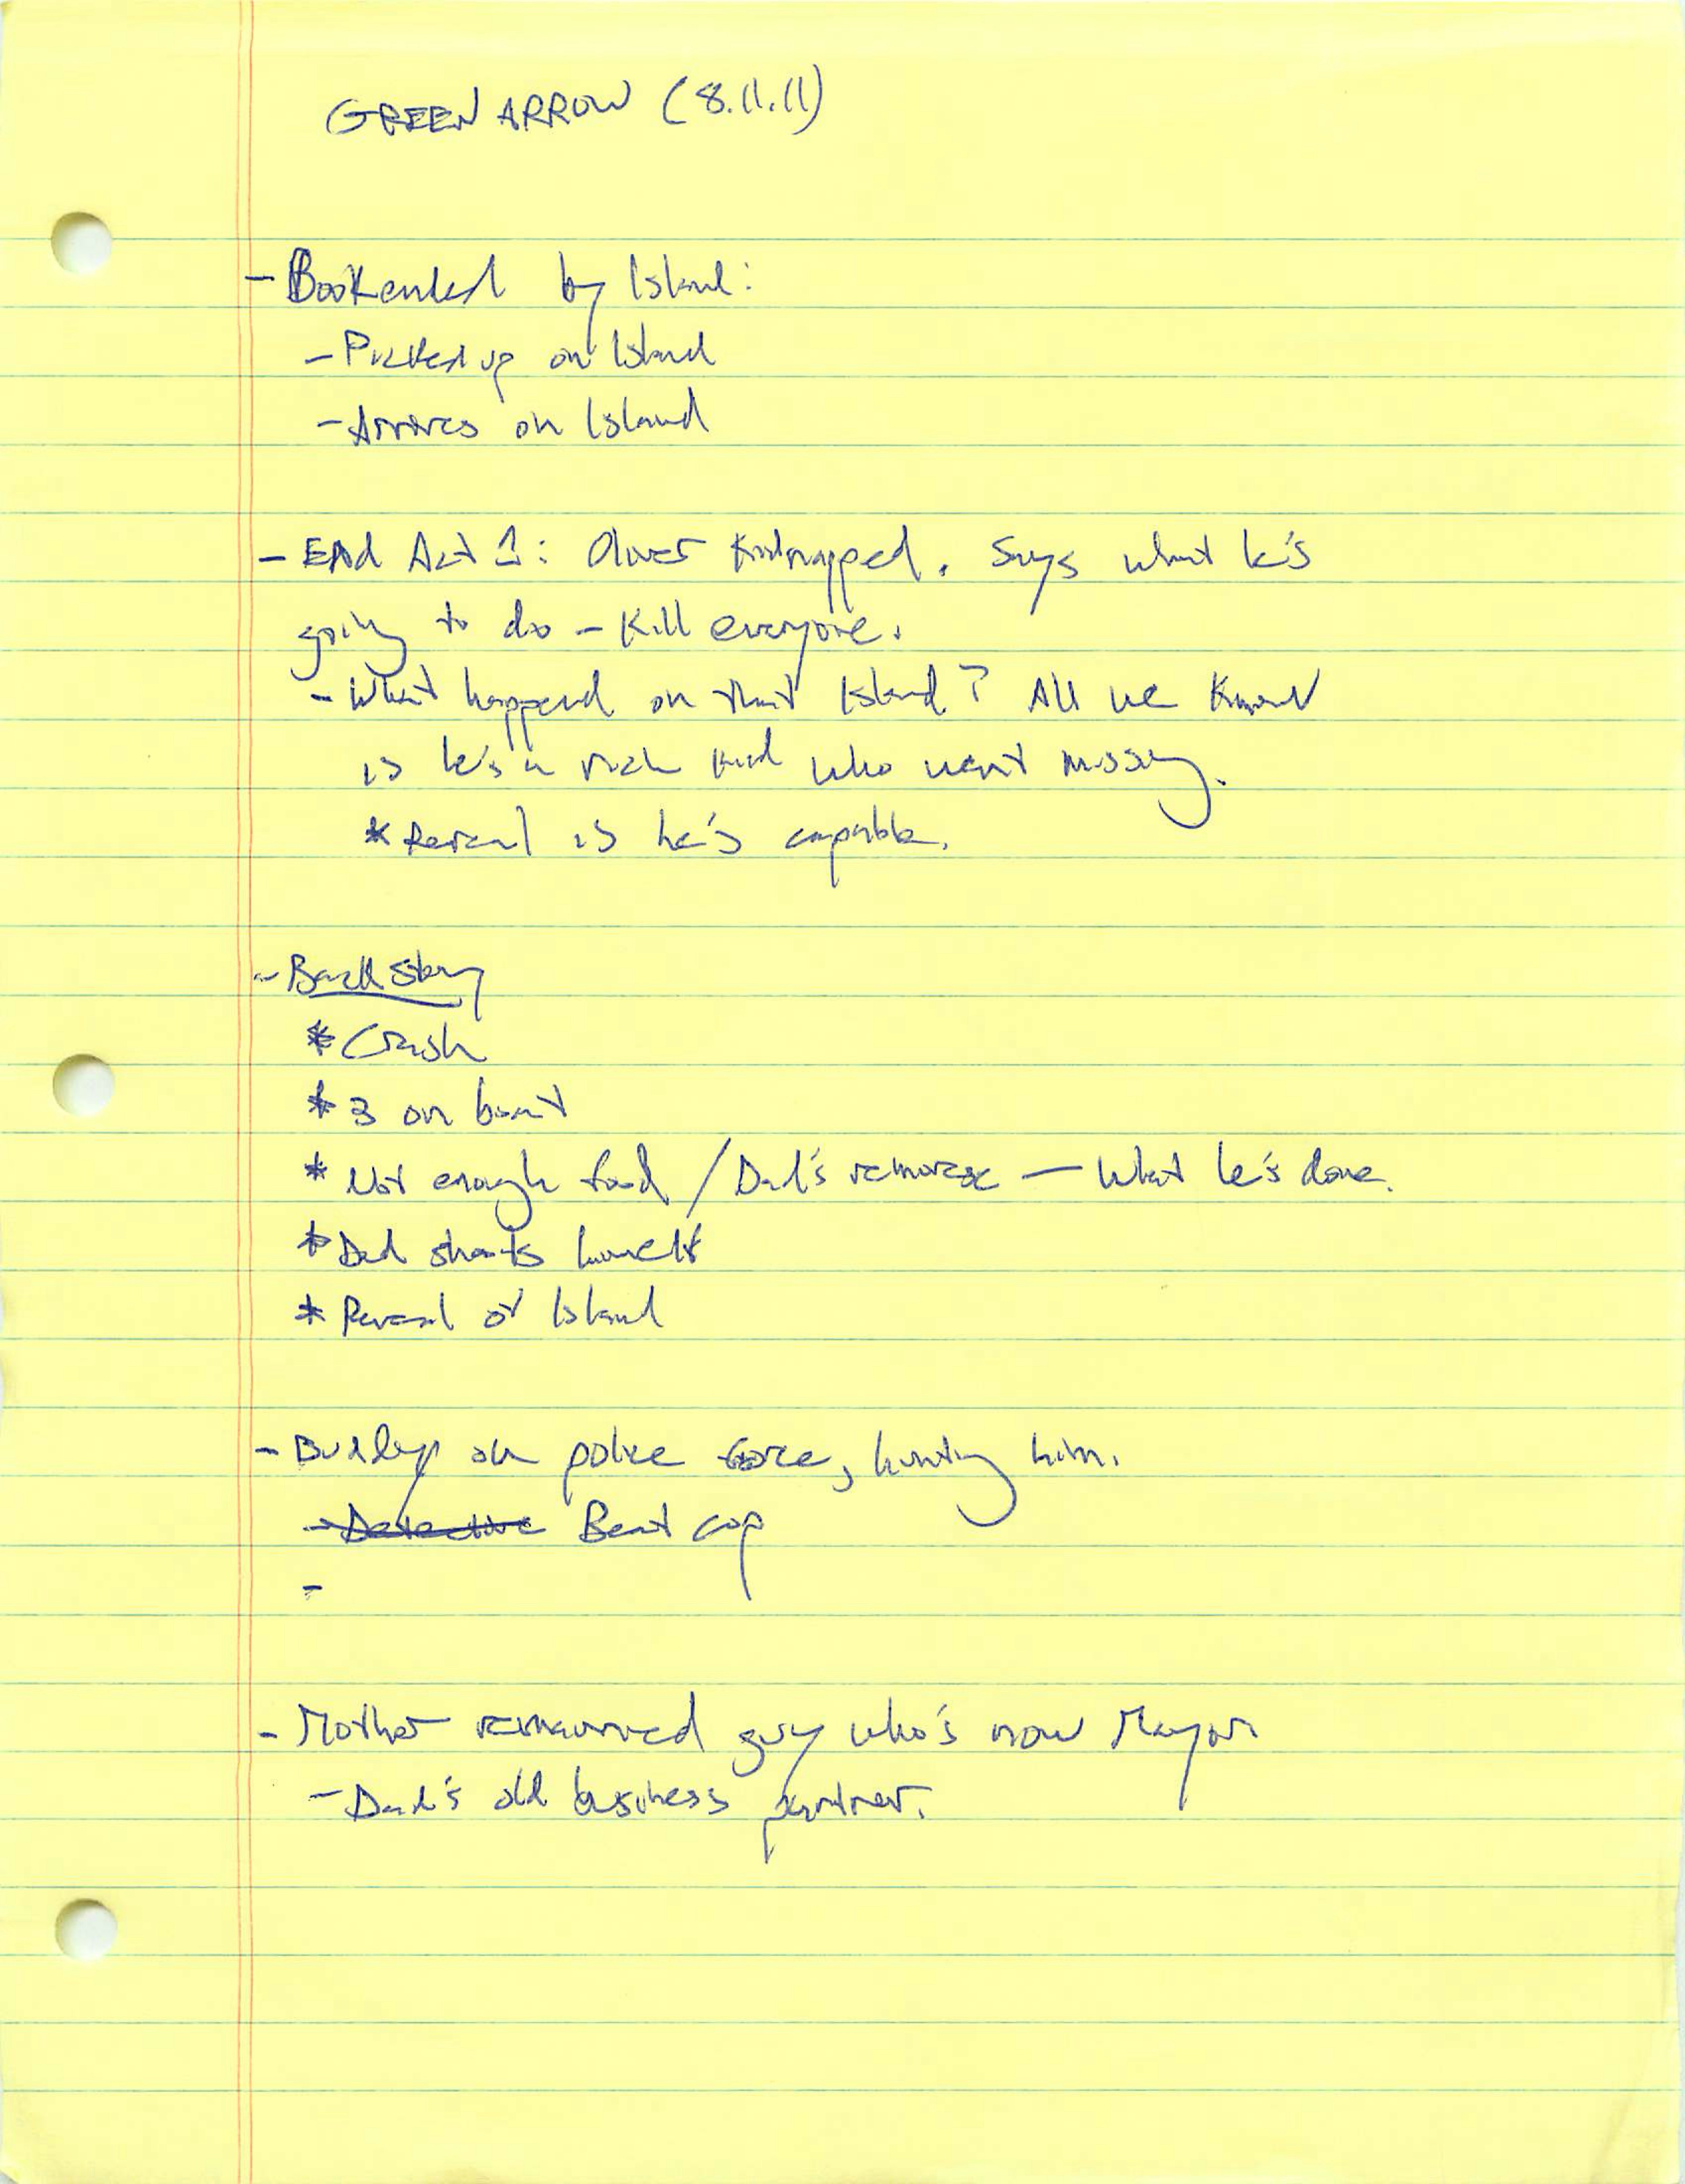 GREEN ARROW (8.11.11)
- Bookended by Island:
- Picked up on Island
- Arrives on Island
- End Act 1: Oliver kidnapped. Says what he's
going to do - Kill everyone.
- What happend on that Island? All we know
is he's a rich kid who went missing.
* Reveal is he's capable.
- Backstory
* Crash
* 3 on boat
* Not enough food / Dad's remorse — What he's done.
* Dad shoots himself
* Reveal of Island
- Buddy on police force, hunting him.
- Detective Beat cop
-
- Mother remarried guy who's now Mayor.
- Dad's old business partner.